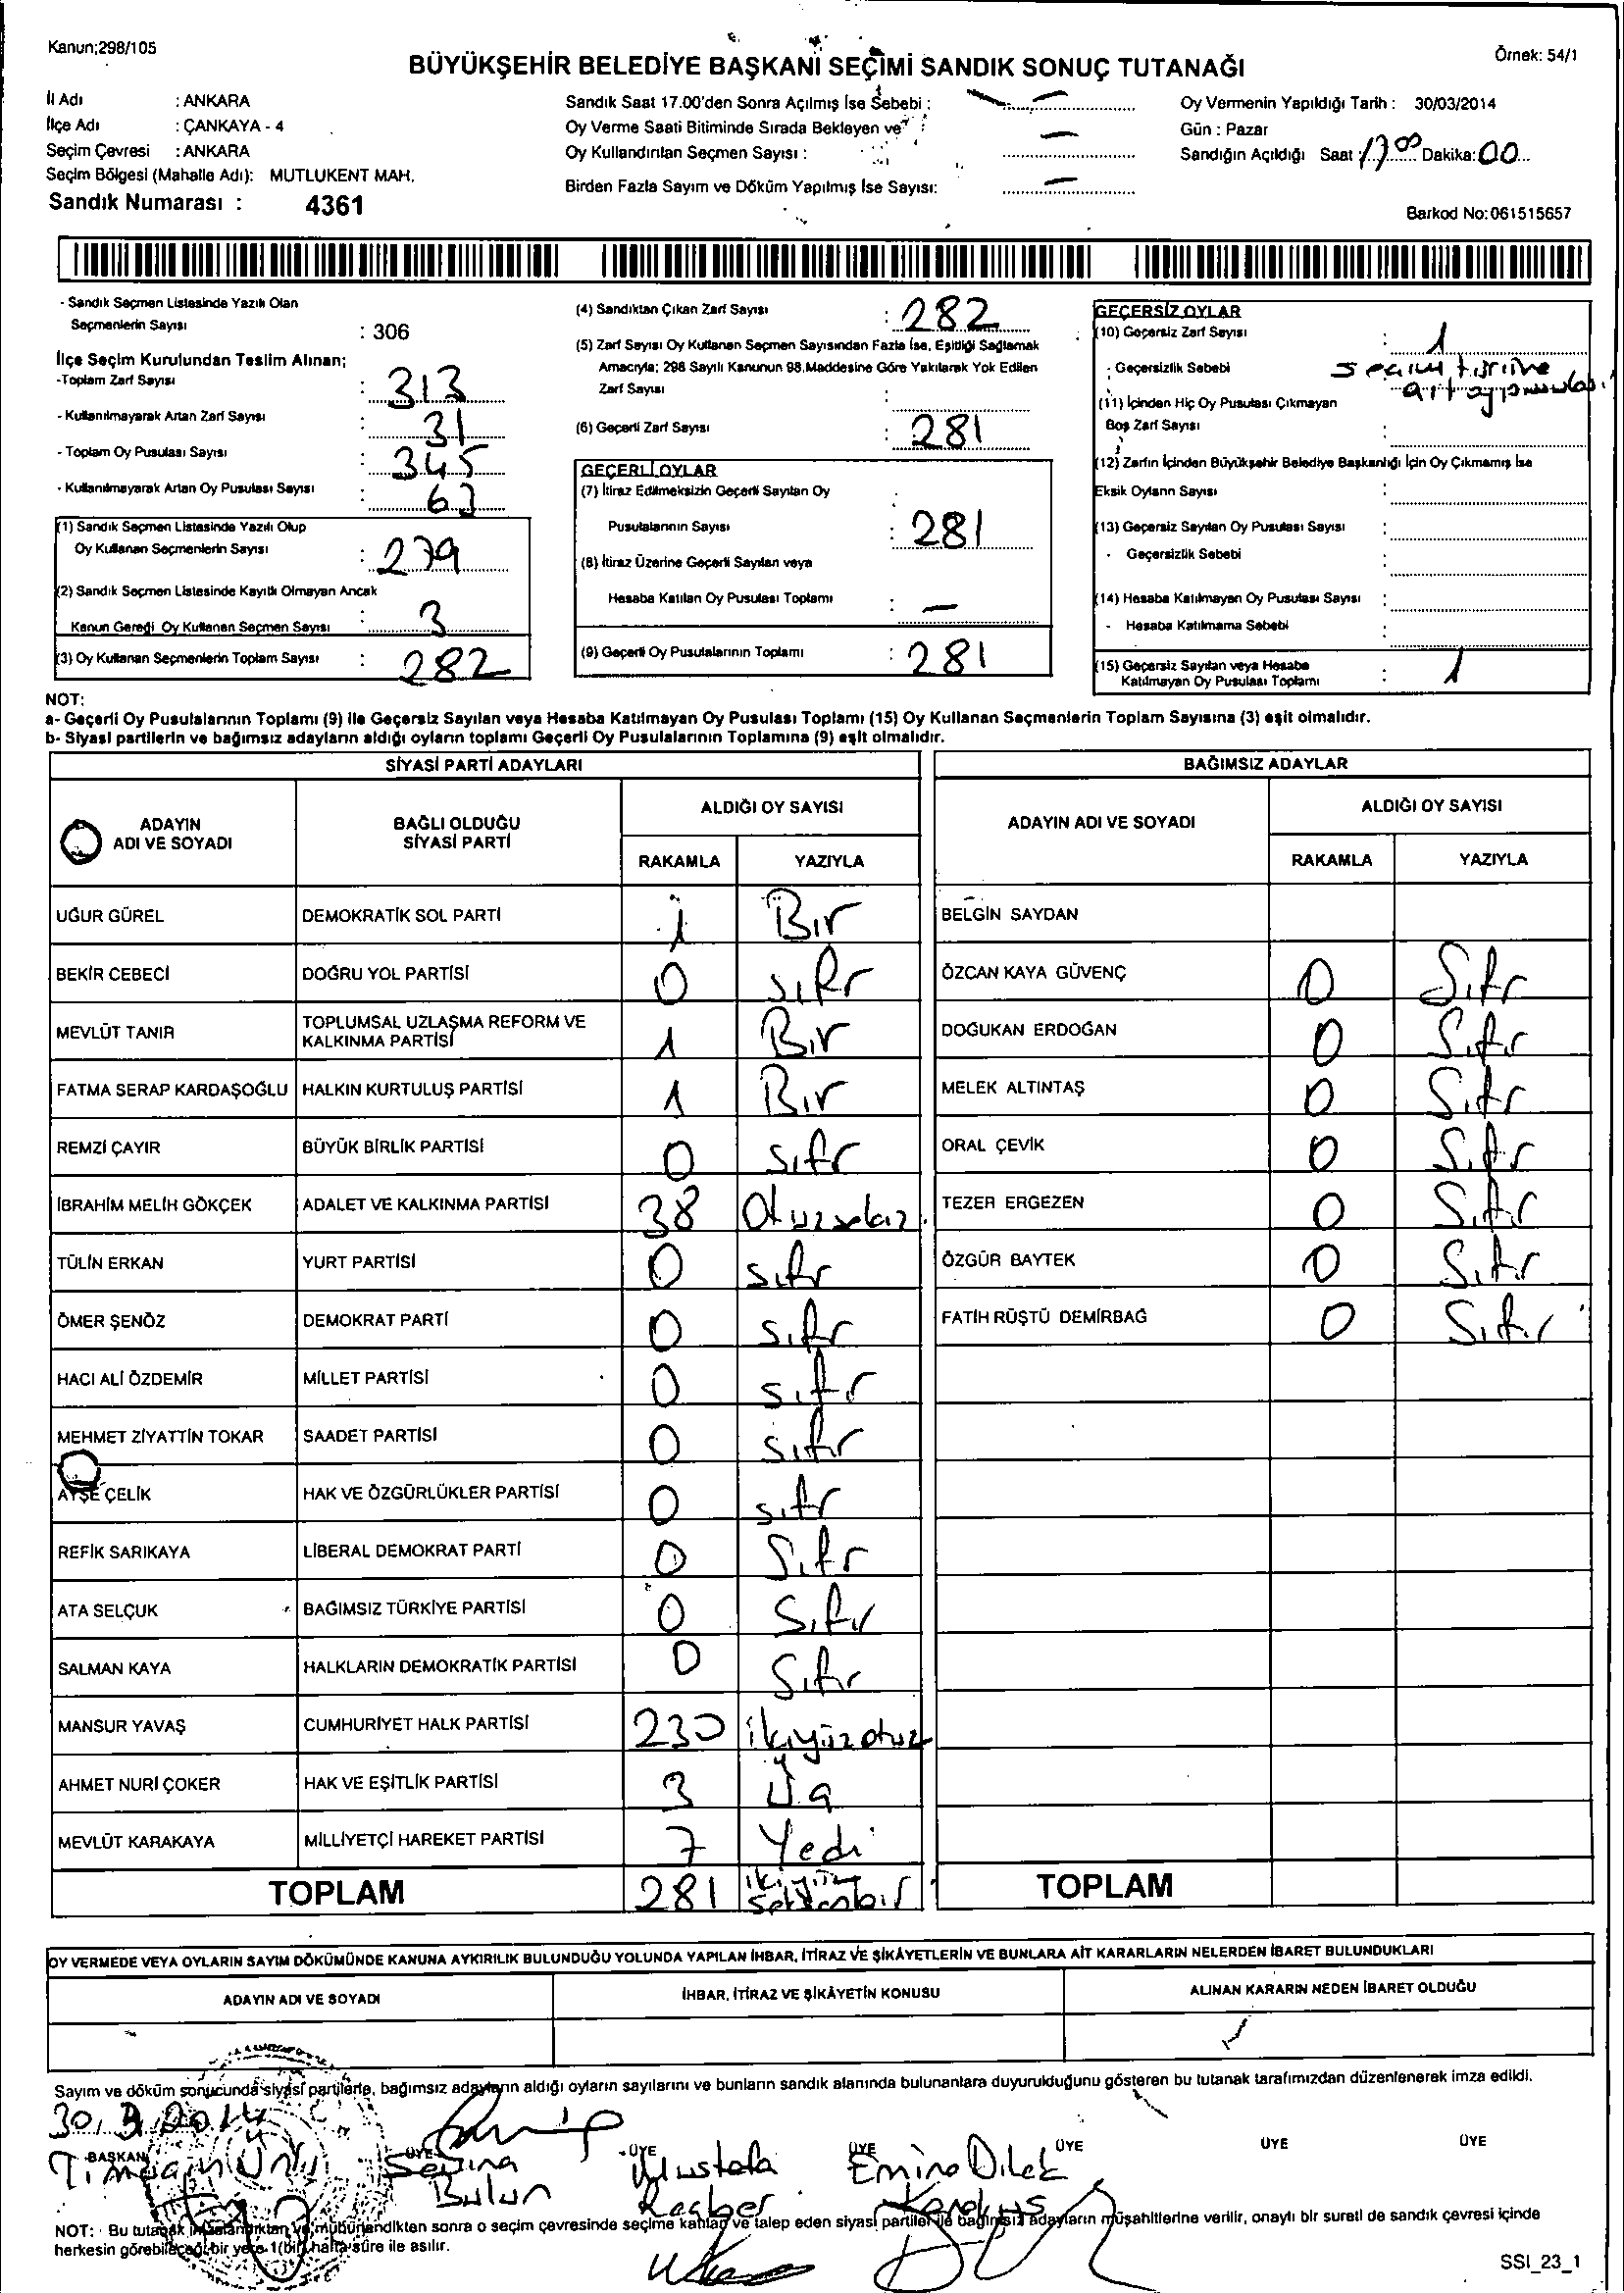 Kanun;298/105
Örnek: 54/1
BÜYÜKŞEHİR BELEDİYE BAŞKANI SEÇİMİ SANDIK SONUÇ TUTANAĞI
İl Adı : ANKARA
İlçe Adı : ÇANKAYA - 4
Seçim Çevresi : ANKARA
Seçim Bölgesi (Mahalle Adı): MUTLUKENT MAH.
Sandık Numarası : 4361
Sandık Saat 17.00'den Sonra Açılmış İse Sebebi : —
Oy Verme Saati Bitiminde Sırada Bekleyen ve
Oy Kullandırılan Seçmen Sayısı : —
Birden Fazla Sayım ve Döküm Yapılmış İse Sayısı: —
Oy Vermenin Yapıldığı Tarih : 30/03/2014
Gün : Pazar
Sandığın Açıldığı Saat 17 00 Dakika: 00
Barkod No:061515657
- Sandık Seçmen Listesinde Yazılı Olan
Seçmenlerin Sayısı : 306
İlçe Seçim Kurulundan Teslim Alınan;
-Toplam Zarf Sayısı : 313
- Kullanılmayarak Artan Zarf Sayısı : 31
- Toplam Oy Pusulası Sayısı : 345
- Kullanılmayarak Artan Oy Pusulası Sayısı : 63
(1) Sandık Seçmen Listesinde Yazılı Olup
Oy Kullanan Seçmenlerin Sayısı : 279
(2) Sandık Seçmen Listesinde Kayıtlı Olmayan Ancak
Kanun Gereği Oy Kullanan Seçmen Sayısı : 3
(3) Oy Kullanan Seçmenlerin Toplam Sayısı : 282
(4) Sandıktan Çıkan Zarf Sayısı : 282
(5) Zarf Sayısı Oy Kullanan Seçmen Sayısından Fazla İse, Eşitliği Sağlamak
Amacıyla; 298 Sayılı Kanunun 98.Maddesine Göre Yakılarak Yok Edilen
Zarf Sayısı :
(6) Geçerli Zarf Sayısı : 281
GEÇERLİ OYLAR
(7) İtiraz Edilmeksizin Geçerli Sayılan Oy
Pusulalarının Sayısı : 281
(8) İtiraz Üzerine Geçerli Sayılan veya
Hesaba Katılan Oy Pusulası Toplamı : —
(9) Geçerli Oy Pusulalarının Toplamı : 281
GEÇERSİZ OYLAR
(10) Geçersiz Zarf Sayısı : 1
- Geçersizlik Sebebi :
(11) İçinden Hiç Oy Pusulası Çıkmayan
Boş Zarf Sayısı :
(12) Zarfın İçinden Büyükşehir Belediye Başkanlığı İçin Oy Çıkmamış İse
Eksik Oyların Sayısı :
(13) Geçersiz Sayılan Oy Pusulası Sayısı :
- Geçersizlik Sebebi :
(14) Hesaba Katılmayan Oy Pusulası Sayısı :
- Hesaba Katılmama Sebebi :
(15) Geçersiz Sayılan veya Hesaba
Katılmayan Oy Pusulası Toplamı : 1
NOT:
a- Geçerli Oy Pusulalarının Toplamı (9) ile Geçersiz Sayılan veya Hesaba Katılmayan Oy Pusulası Toplamı (15) Oy Kullanan Seçmenlerin Toplam Sayısına (3) eşit olmalıdır.
b- Siyasi partilerin ve bağımsız adayların aldığı oyların toplamı Geçerli Oy Pusulalarının Toplamına (9) eşit olmalıdır.
SİYASİ PARTİ ADAYLARI
ADAYIN ADI VE SOYADI BAĞLI OLDUĞU SİYASİ PARTİ ALDIĞI OY SAYISI
RAKAMLA YAZIYLA
UĞUR GÜREL DEMOKRATİK SOL PARTİ 1 Bir
BEKİR CEBECİ DOĞRU YOL PARTİSİ 0 sıfır
MEVLÜT TANIR TOPLUMSAL UZLAŞMA REFORM VE KALKINMA PARTİSİ 1 Bir
FATMA SERAP KARDAŞOĞLU HALKIN KURTULUŞ PARTİSİ 1 Bir
REMZİ ÇAYIR BÜYÜK BİRLİK PARTİSİ 0 sıfır
İBRAHİM MELİH GÖKÇEK ADALET VE KALKINMA PARTİSİ 38 Otuzsekiz
TÜLİN ERKAN YURT PARTİSİ 0 sıfır
ÖMER ŞENÖZ DEMOKRAT PARTİ 0 sıfır
HACI ALİ ÖZDEMİR MİLLET PARTİSİ 0 sıfır
MEHMET ZİYATTİN TOKAR SAADET PARTİSİ 0 sıfır
AYŞE ÇELİK HAK VE ÖZGÜRLÜKLER PARTİSİ 0 sıfır
REFİK SARIKAYA LİBERAL DEMOKRAT PARTİ 0 Sıfır
ATA SELÇUK BAĞIMSIZ TÜRKİYE PARTİSİ 0 Sıfır
SALMAN KAYA HALKLARIN DEMOKRATİK PARTİSİ 0 Sıfır
MANSUR YAVAŞ CUMHURİYET HALK PARTİSİ 230 ikiyüzotuz
AHMET NURİ ÇOKER HAK VE EŞİTLİK PARTİSİ 3 Üç
MEVLÜT KARAKAYA MİLLİYETÇİ HAREKET PARTİSİ 7 Yedi
TOPLAM 281 ikiyüz seksenbir
BAĞIMSIZ ADAYLAR
ADAYIN ADI VE SOYADI ALDIĞI OY SAYISI
RAKAMLA YAZIYLA
BELGİN SAYDAN
ÖZCAN KAYA GÜVENÇ 0 Sıfır
DOĞUKAN ERDOĞAN 0 Sıfır
MELEK ALTINTAŞ 0 Sıfır
ORAL ÇEVİK 0 Sıfır
TEZER ERGEZEN 0 Sıfır
ÖZGÜR BAYTEK 0 Sıfır
FATİH RÜŞTÜ DEMİRBAĞ 0 Sıfır
TOPLAM
OY VERMEDE VEYA OYLARIN SAYIM DÖKÜMÜNDE KANUNA AYKIRILIK BULUNDUĞU YOLUNDA YAPILAN İHBAR, İTİRAZ VE ŞİKÂYETLERİN VE BUNLARA AİT KARARLARIN NELERDEN İBARET BULUNDUKLARI
ADAYIN ADI VE SOYADI İHBAR, İTİRAZ VE ŞİKÂYETİN KONUSU ALINAN KARARIN NEDEN İBARET OLDUĞU
Sayım ve döküm sonucunda siyasi partilerle, bağımsız adayların aldığı oyların sayılarını ve bunların sandık alanında bulunanlara duyurulduğunu gösteren bu tutanak tarafımızdan düzenlenerek imza edildi.
30.3.2014
BAŞKAN ÜYE ÜYE ÜYE ÜYE ÜYE ÜYE
Mustafa Emine Dilek
Bulun
NOT: Bu tutanak imzalandıktan ve mühürlendikten sonra o seçim çevresinde seçime katılan ve talep eden siyasi partiler ile bağımsız adayların müşahitlerine verilir, onaylı bir sureti de sandık çevresi içinde
herkesin görebileceği bir yere 1(bir) hafta süre ile asılır.
SSI_23_1